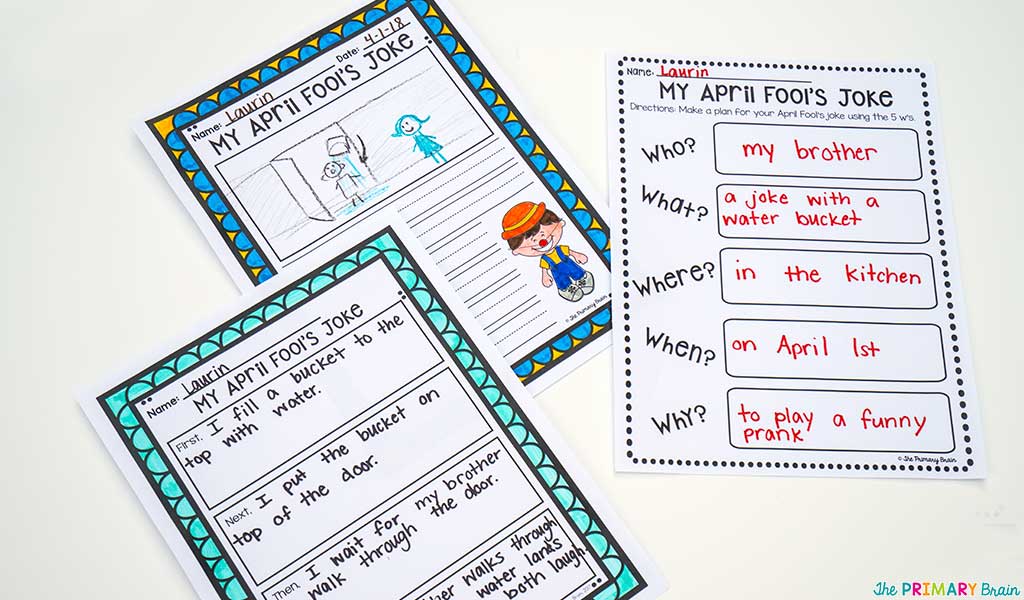 Name: Laurin
Date: 4-1-18
MY APRIL FOOL'S JOKE
© The Primary Brain
Name: Laurin
MY APRIL FOOL'S JOKE
First, I fill a bucket to the
top with water.
Next, I put the bucket on
top of the door.
Then, I wait for my brother
walk through the door.
walks through
water lands
both laugh.
Name: Laurin
MY APRIL FOOL'S JOKE
Directions: Make a plan for your April Fool's joke using the 5 w's.
Who? my brother
What? a joke with a
water bucket
Where? in the kitchen
When? on April 1st
Why? to play a funny
prank
© The Primary Brain
The PRIMARY Brain